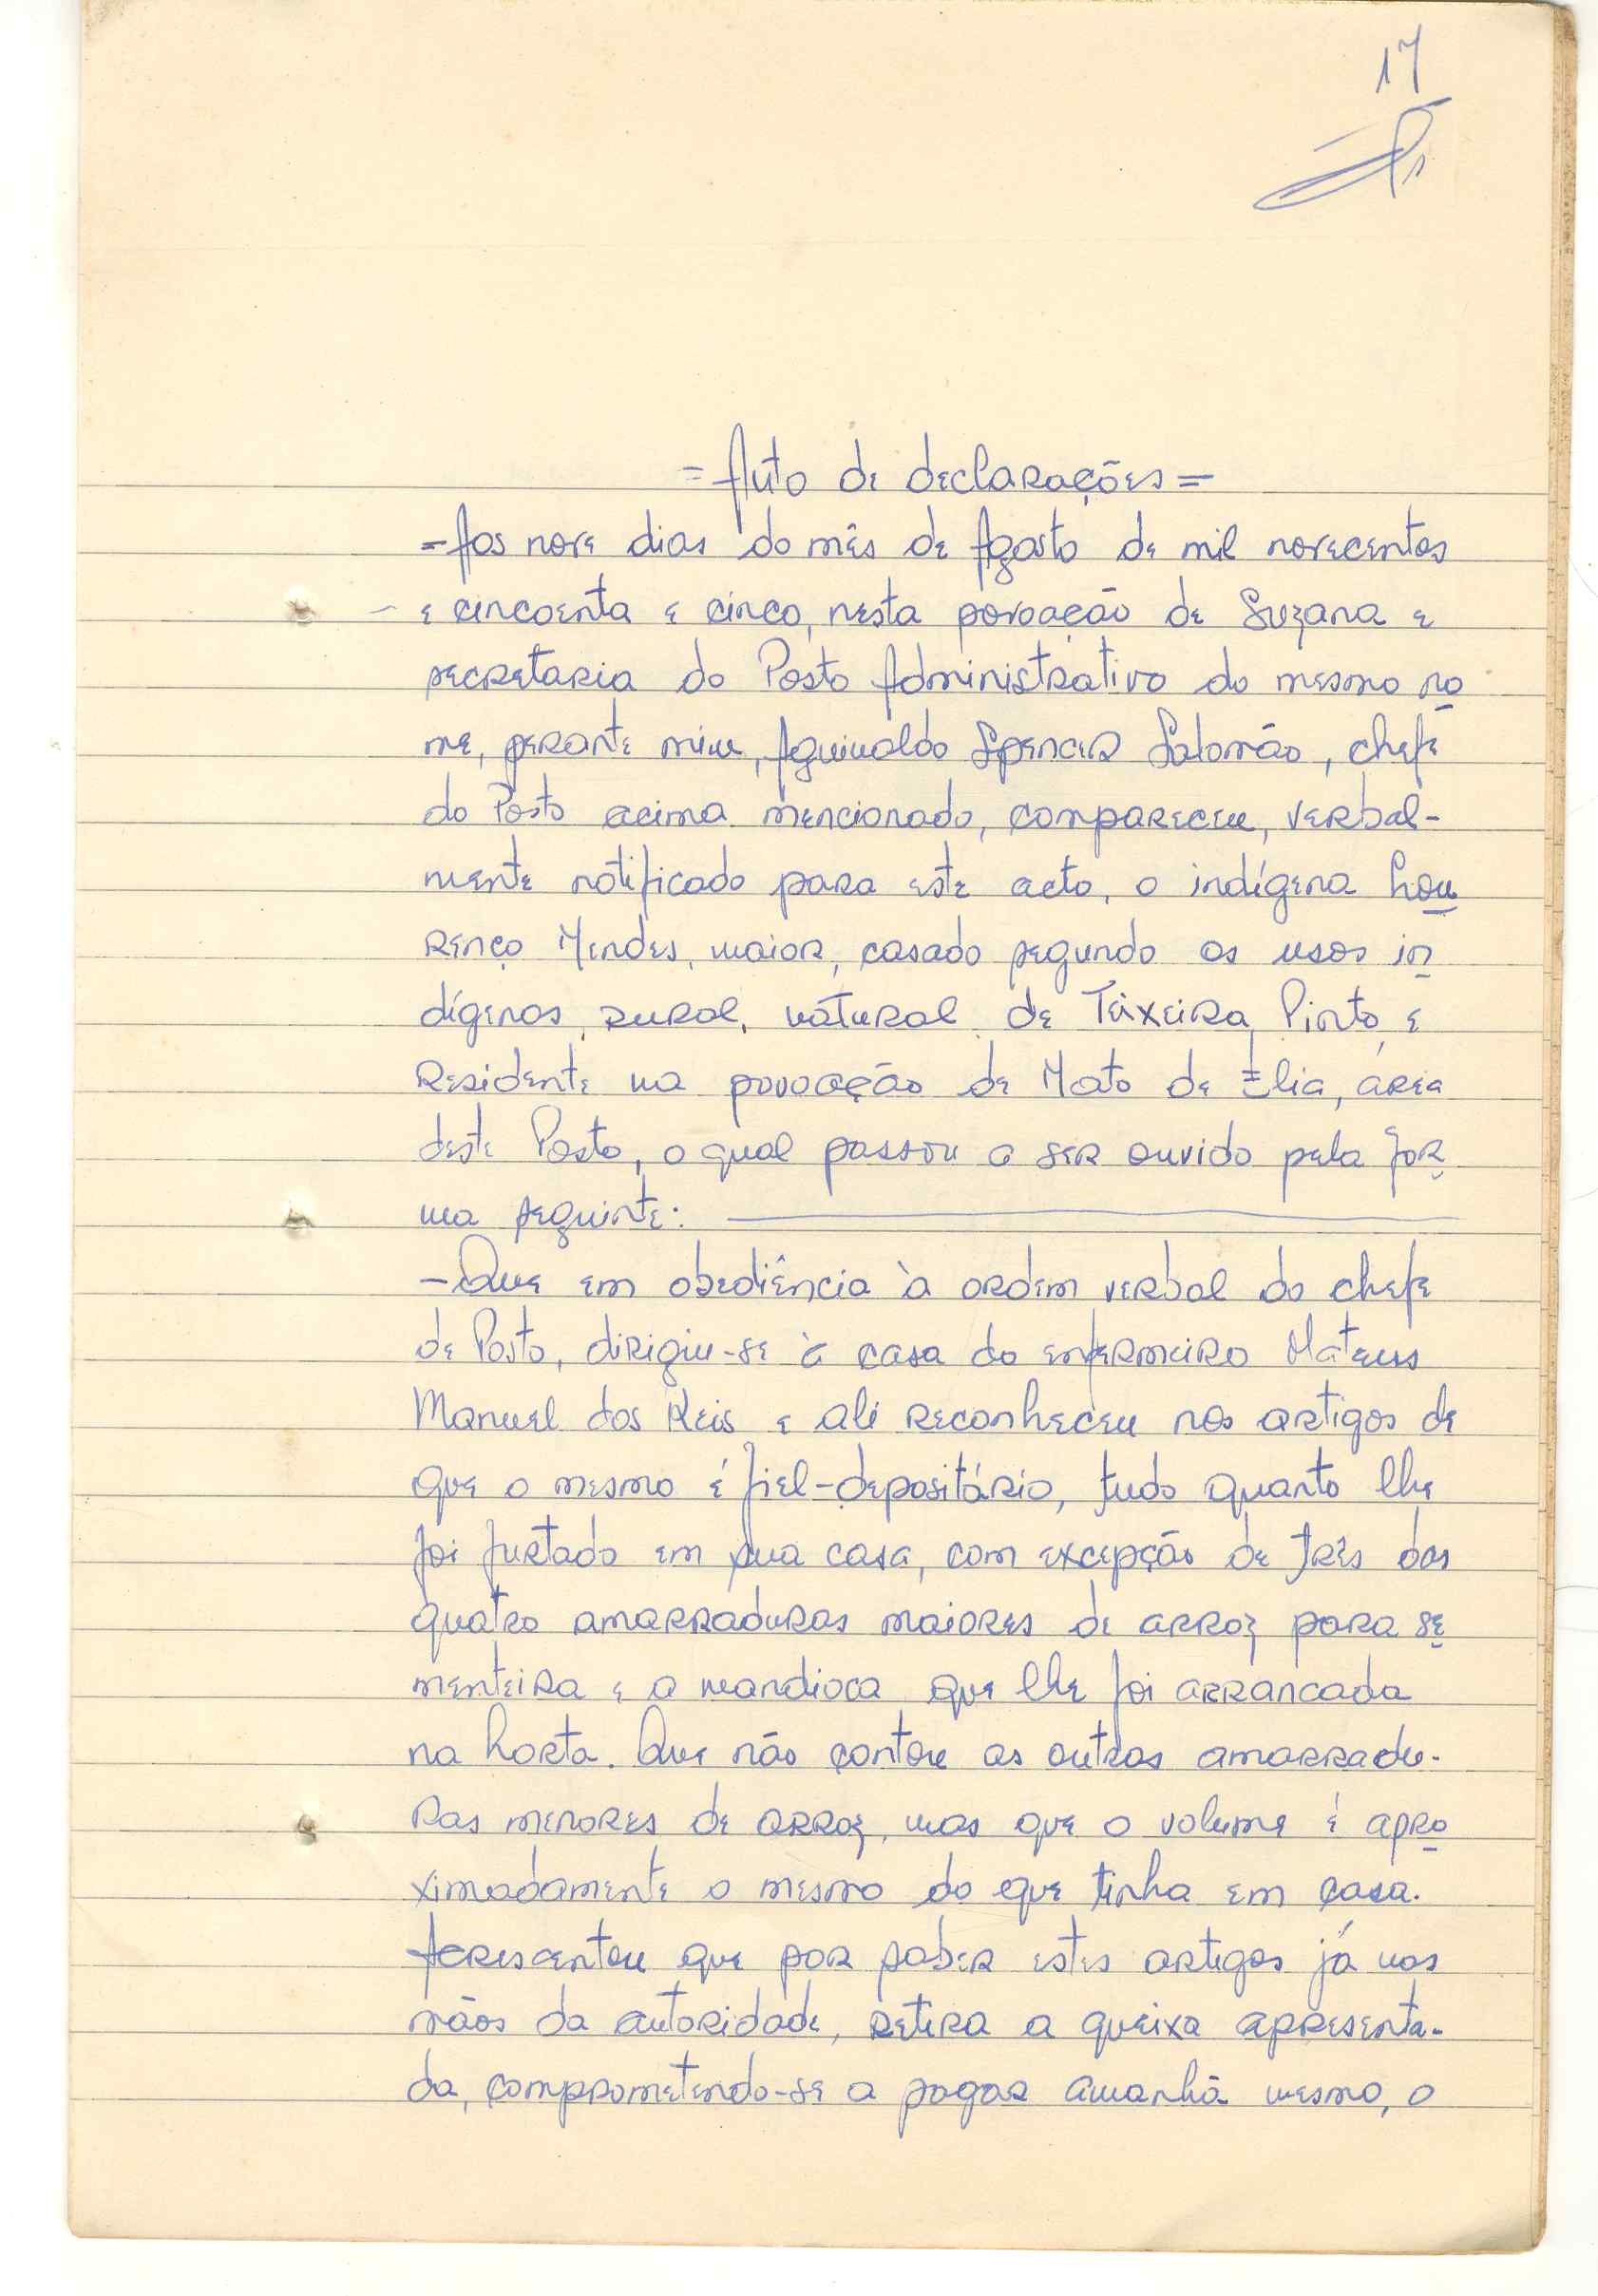 17
= Auto de declarações =
= Aos nove dias do mês de Agosto de mil novecentos
e cincoenta e cinco, nesta povoação de Suzana e
secretaria do Posto Administrativo do mesmo no
me, perante mim, Aguinaldo Spencer Salomão, chefe
do Posto acima mencionado, compareceu, verbal-
mente notificado para este acto, o indígena Lou
renço Mendes, maior, casado segundo os usos in
dígenas, rural, natural de Teixeira Pinto, e
residente na povoação de Mato de Élia, área
deste Posto, o qual passou a ser ouvido pela for
ma seguinte:
- Que em obediência à ordem verbal do chefe
de Posto, dirigiu-se à casa do enfermeiro Mateus
Manuel dos Reis e ali reconheceu nos artigos de
que o mesmo é fiel-depositário, tudo quanto lhe
foi furtado em sua casa, com excepção de três das
quatro amarraduras maiores de arroz para se
menteira e a mandioca que lhe foi arrancada
na horta. Que não contou as outras amarradu-
ras menores de arroz, mas que o volume é apro
ximadamente o mesmo do que tinha em casa.
Acrescentou que por saber estes artigos já nas
mãos da autoridade, retira a queixa apresenta-
da, comprometendo-se a pagar amanhã mesmo, o